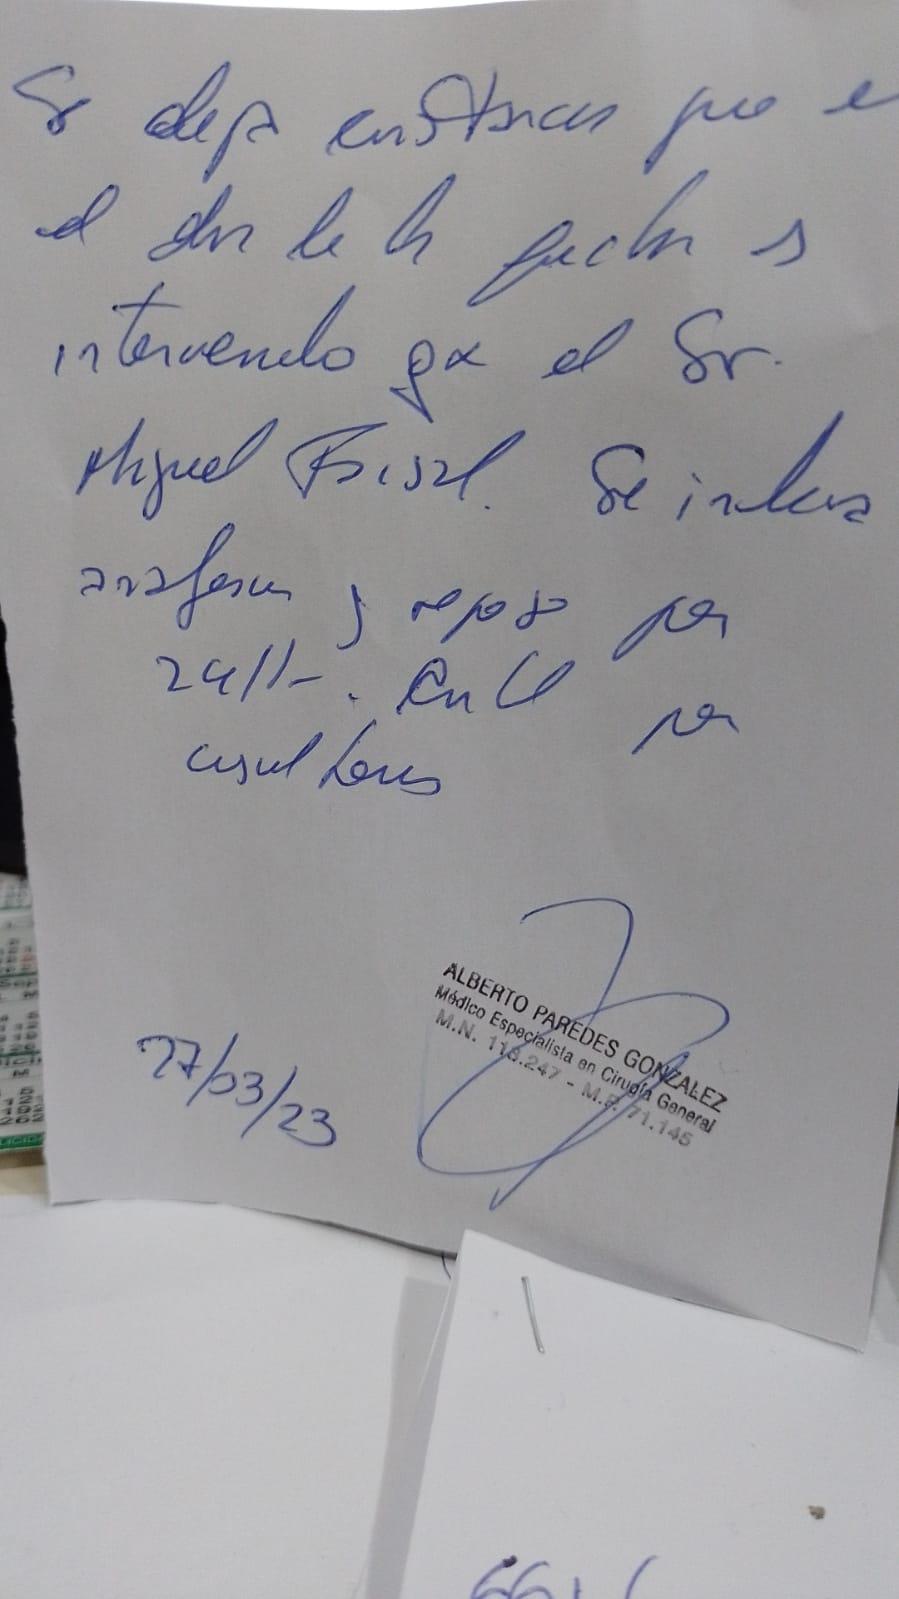 Se deja constancia que e
el dia de la fecha s
intervenido qx el Sr.
Miguel Se indica
analgesia y reposo por
24 hs. Control por
consultorios
27/03/23
ALBERTO PAREDES GONZALEZ
Médico Especialista en Cirugía General
M.N. 118.247 - M.P. 71.145